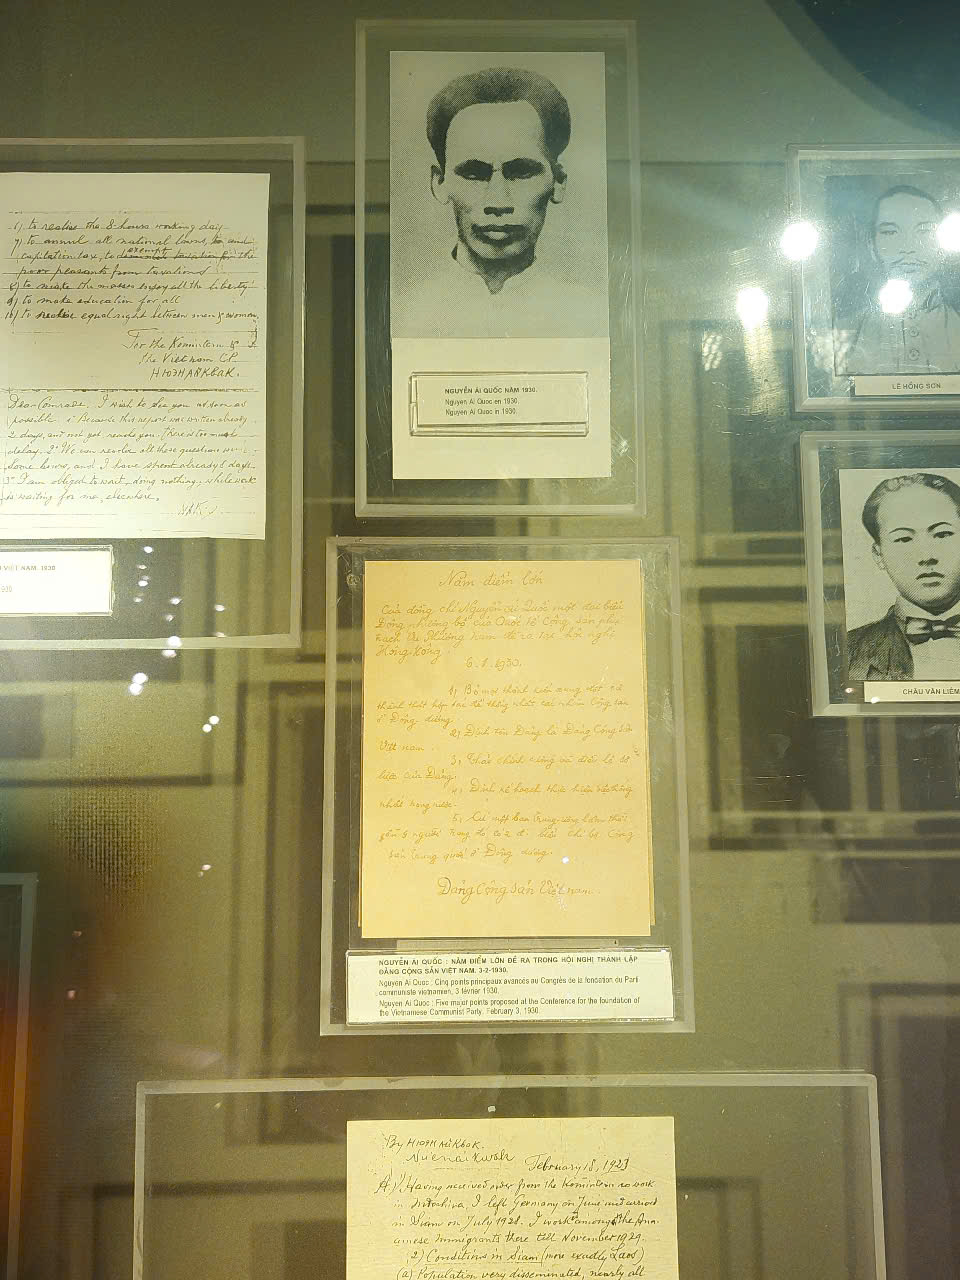 6) to realise the 8 hours working day
7) to annul all national loans, and
capitation tax, to exempt the
poor peasants from taxations
8) to make the masses enjoy all the liberty
9) to make education for all
10) to realise equal right between men & women,
For the Komintern &
the Vietnam C.P.
Dear Comrade. I wish to see you as soon as
possible. 1: Because this report was written already
2 days, and not yet reach you. There is too much
delay. 2° We can all these question in
some hours, and I have spent already 6 days.
3° I am obliged to wait, doing nothing, while work
is waiting for me, elsewhere.
VIỆT NAM. 1930
930
NGUYỄN ÁI QUỐC NĂM 1930.
Nguyen Ai Quoc en 1930.
Nguyen Ai Quoc in 1930.
LÊ HỒNG SƠN
CHÂU VĂN LIÊM
Năm điểm lớn
Của đồng chí Nguyễn ái Quốc một đại biểu
Đông phương bộ của Quốc tế Cộng sản phụ
trách đề ra tại hội nghị
Hồng Kông.
6.1.1930.
1) Bỏ mọi thành kiến xung đột cũ
thành thật hợp tác để thống nhất các nhóm Cộng sản
ở Đông dương.
2) Định tên Đảng là Đảng Cộng sản
Việt nam.
3) Thảo chính cương và điều lệ sơ
lược của Đảng.
4) Định kế hoạch thực hiện việc thống
nhất trong nước.
5) Cử một ban Trung ương lâm thời
gồm 9 người trong đó có 2 đại biểu chi bộ Cộng
sản trung quốc ở Đông dương.
Đảng Cộng sản Việt nam.
NGUYỄN ÁI QUỐC : NĂM ĐIỂM LỚN ĐỀ RA TRONG HỘI NGHỊ THÀNH LẬP
ĐẢNG CỘNG SẢN VIỆT NAM. 3-2-1930.
Nguyen Ai Quoc : Cinq points principaux avancés au Congrès de la fondation du Parti
communiste vietnamien, 3 février 1930.
Nguyen Ai Quoc : Five major points proposed at the Conference for the foundation of
the Vietnamese Communist Party. February 3, 1930.
By
February 18, 1923
A) 1) Having received order from the Komintern to work
in Indochina, I left Germany on June and arrived
in Siam on July 1928. I worked among the Anna-
mese immigrants there till November 1929.
2) Conditions in Siam (more exactly Laos)
(a) Population very disseminated, nearly all